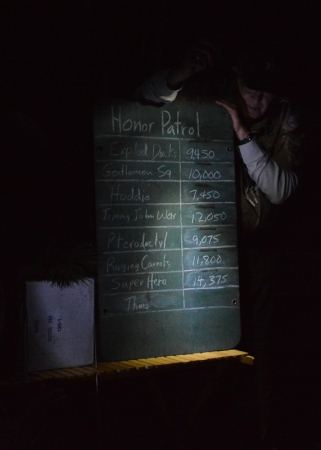 Honor Patrol
Explod Ducks 9,450
Gentlemen Sq. 10,000
Hoddie 7,450
Jimmy John War 12,050
Pterodactyl 9,075
Raging Carrots 11,800
Super Hero 14,375